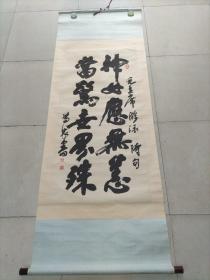 神女应無恙
當驚世界殊
毛主席游泳诗句